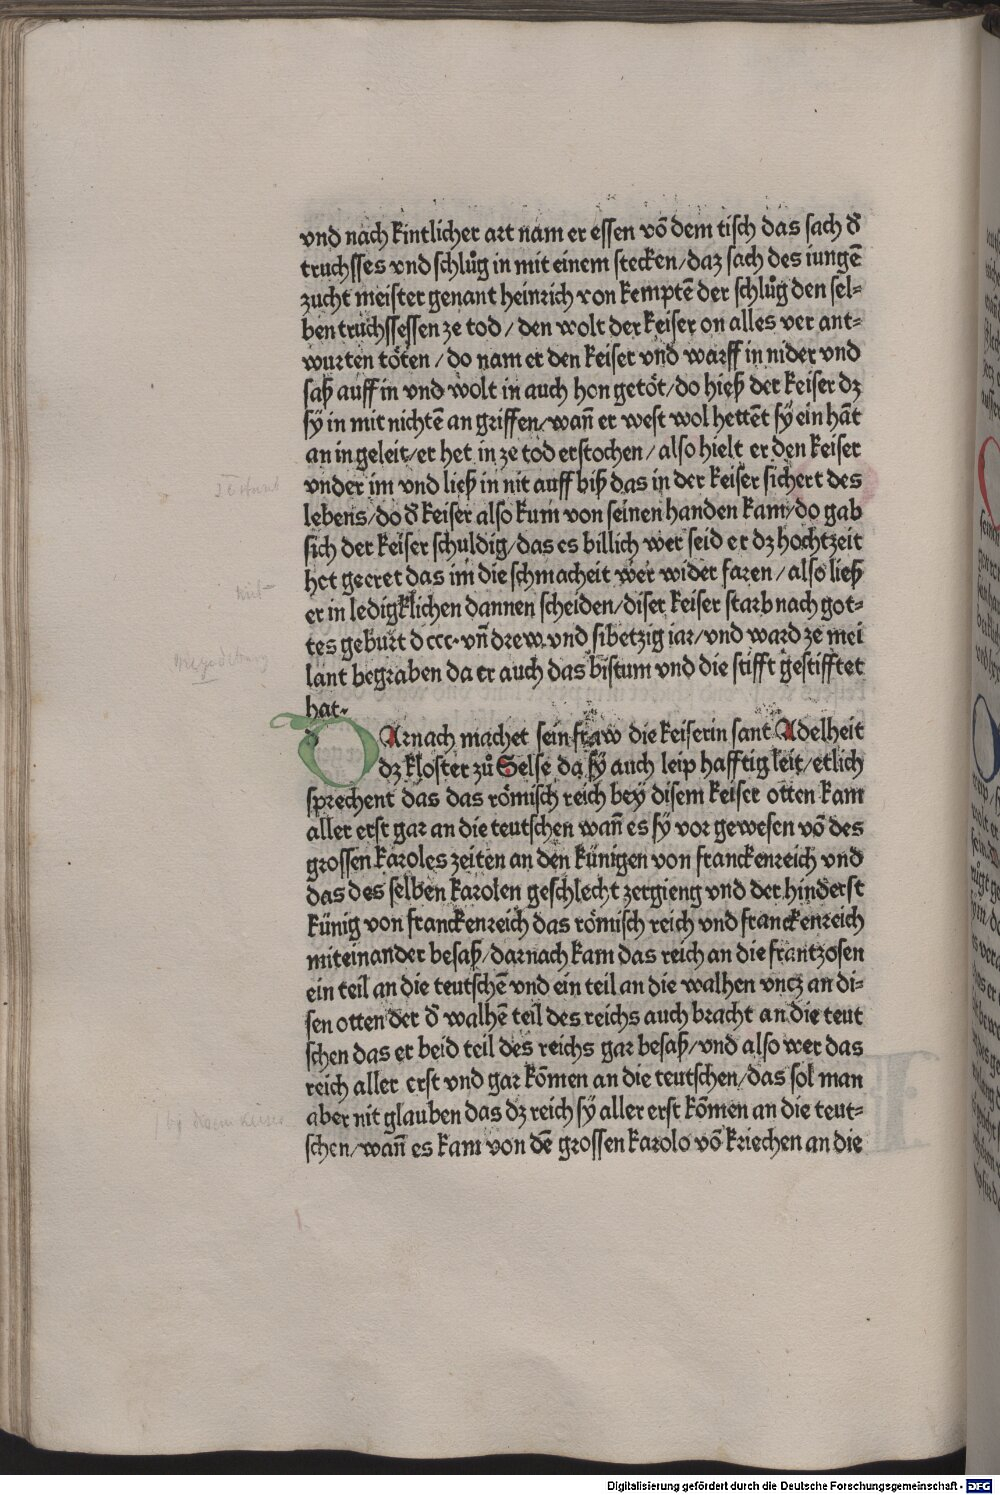 vnd nach kintlicher art nam er essen vō dem tisch das sach d̄
truchsses vnd schlůg in mit einem stecken/daz sach des iungē
zucht meister genant heinrich von kemptē der schlůg den sel⸗
ben truchssessen ze tod/ den wolt der keiser on alles ver ant⸗
wurten töten/ do nam er den keiser vnd warff in nider vnd
saß auff in vnd wolt in auch hon getöt/do hieß der keiser dz
sÿ in mit nichtē an griffen/wañ er west wol hettēt sÿ ein hāt
an in geleit/er het in ze tod erstochen/ also hielt er den keiser
vnder im vnd ließ in nit auff biß das in der keiser sichert des
lebens/do d̄ keiser also kum von seinen handen kam/do gab
sich der keiser schuldig/das es billich wer seid er dz hochtzeit
het geeret das im die schmacheit wer wider faren/ also ließ
er in ledigklichen dannen scheiden/diser keiser starb nach got⸗
tes geburt d ccc· vñ drew vnd sibetzig iar/vnd ward ze mei
lant begraben da er auch das bistum vnd die stifft gestifftet
hat·
DArnach machet sein fraw die keiserin sant Adelheit
dz kloster zů Selse da sÿ auch leip hafftig leit/etlich
sprechent das das römisch reich beÿ disem keiser otten kam
aller erst gar an die teutschen wañ es sÿ vor gewesen vō des
grossen karoles zeiten an den künigen von franckenreich vnd
das des selben karolen geschlecht zergieng vnd der hinderst
künig von franckenreich das römisch reich vnd franckenreich
miteinander besaß/darnach kam das reich an die frantzosen
ein teil an die teutschē vnd ein teil an die walhen vncz an di⸗
sen otten der d̄ walhē teil des reichs auch bracht an die teut
schen das er beid teil des reichs gar besaß/vnd also wer das
reich aller erst vnd gar kōmen an die teutschen/das sol man
aber nit glauben das dz reich sÿ aller erst kōmen an die teut⸗
schen/wañ es kam von dē grossen karolo vō kriechen an die
Digitalisierung gefördert durch die Deutsche Forschungsgemeinschaft - DFG